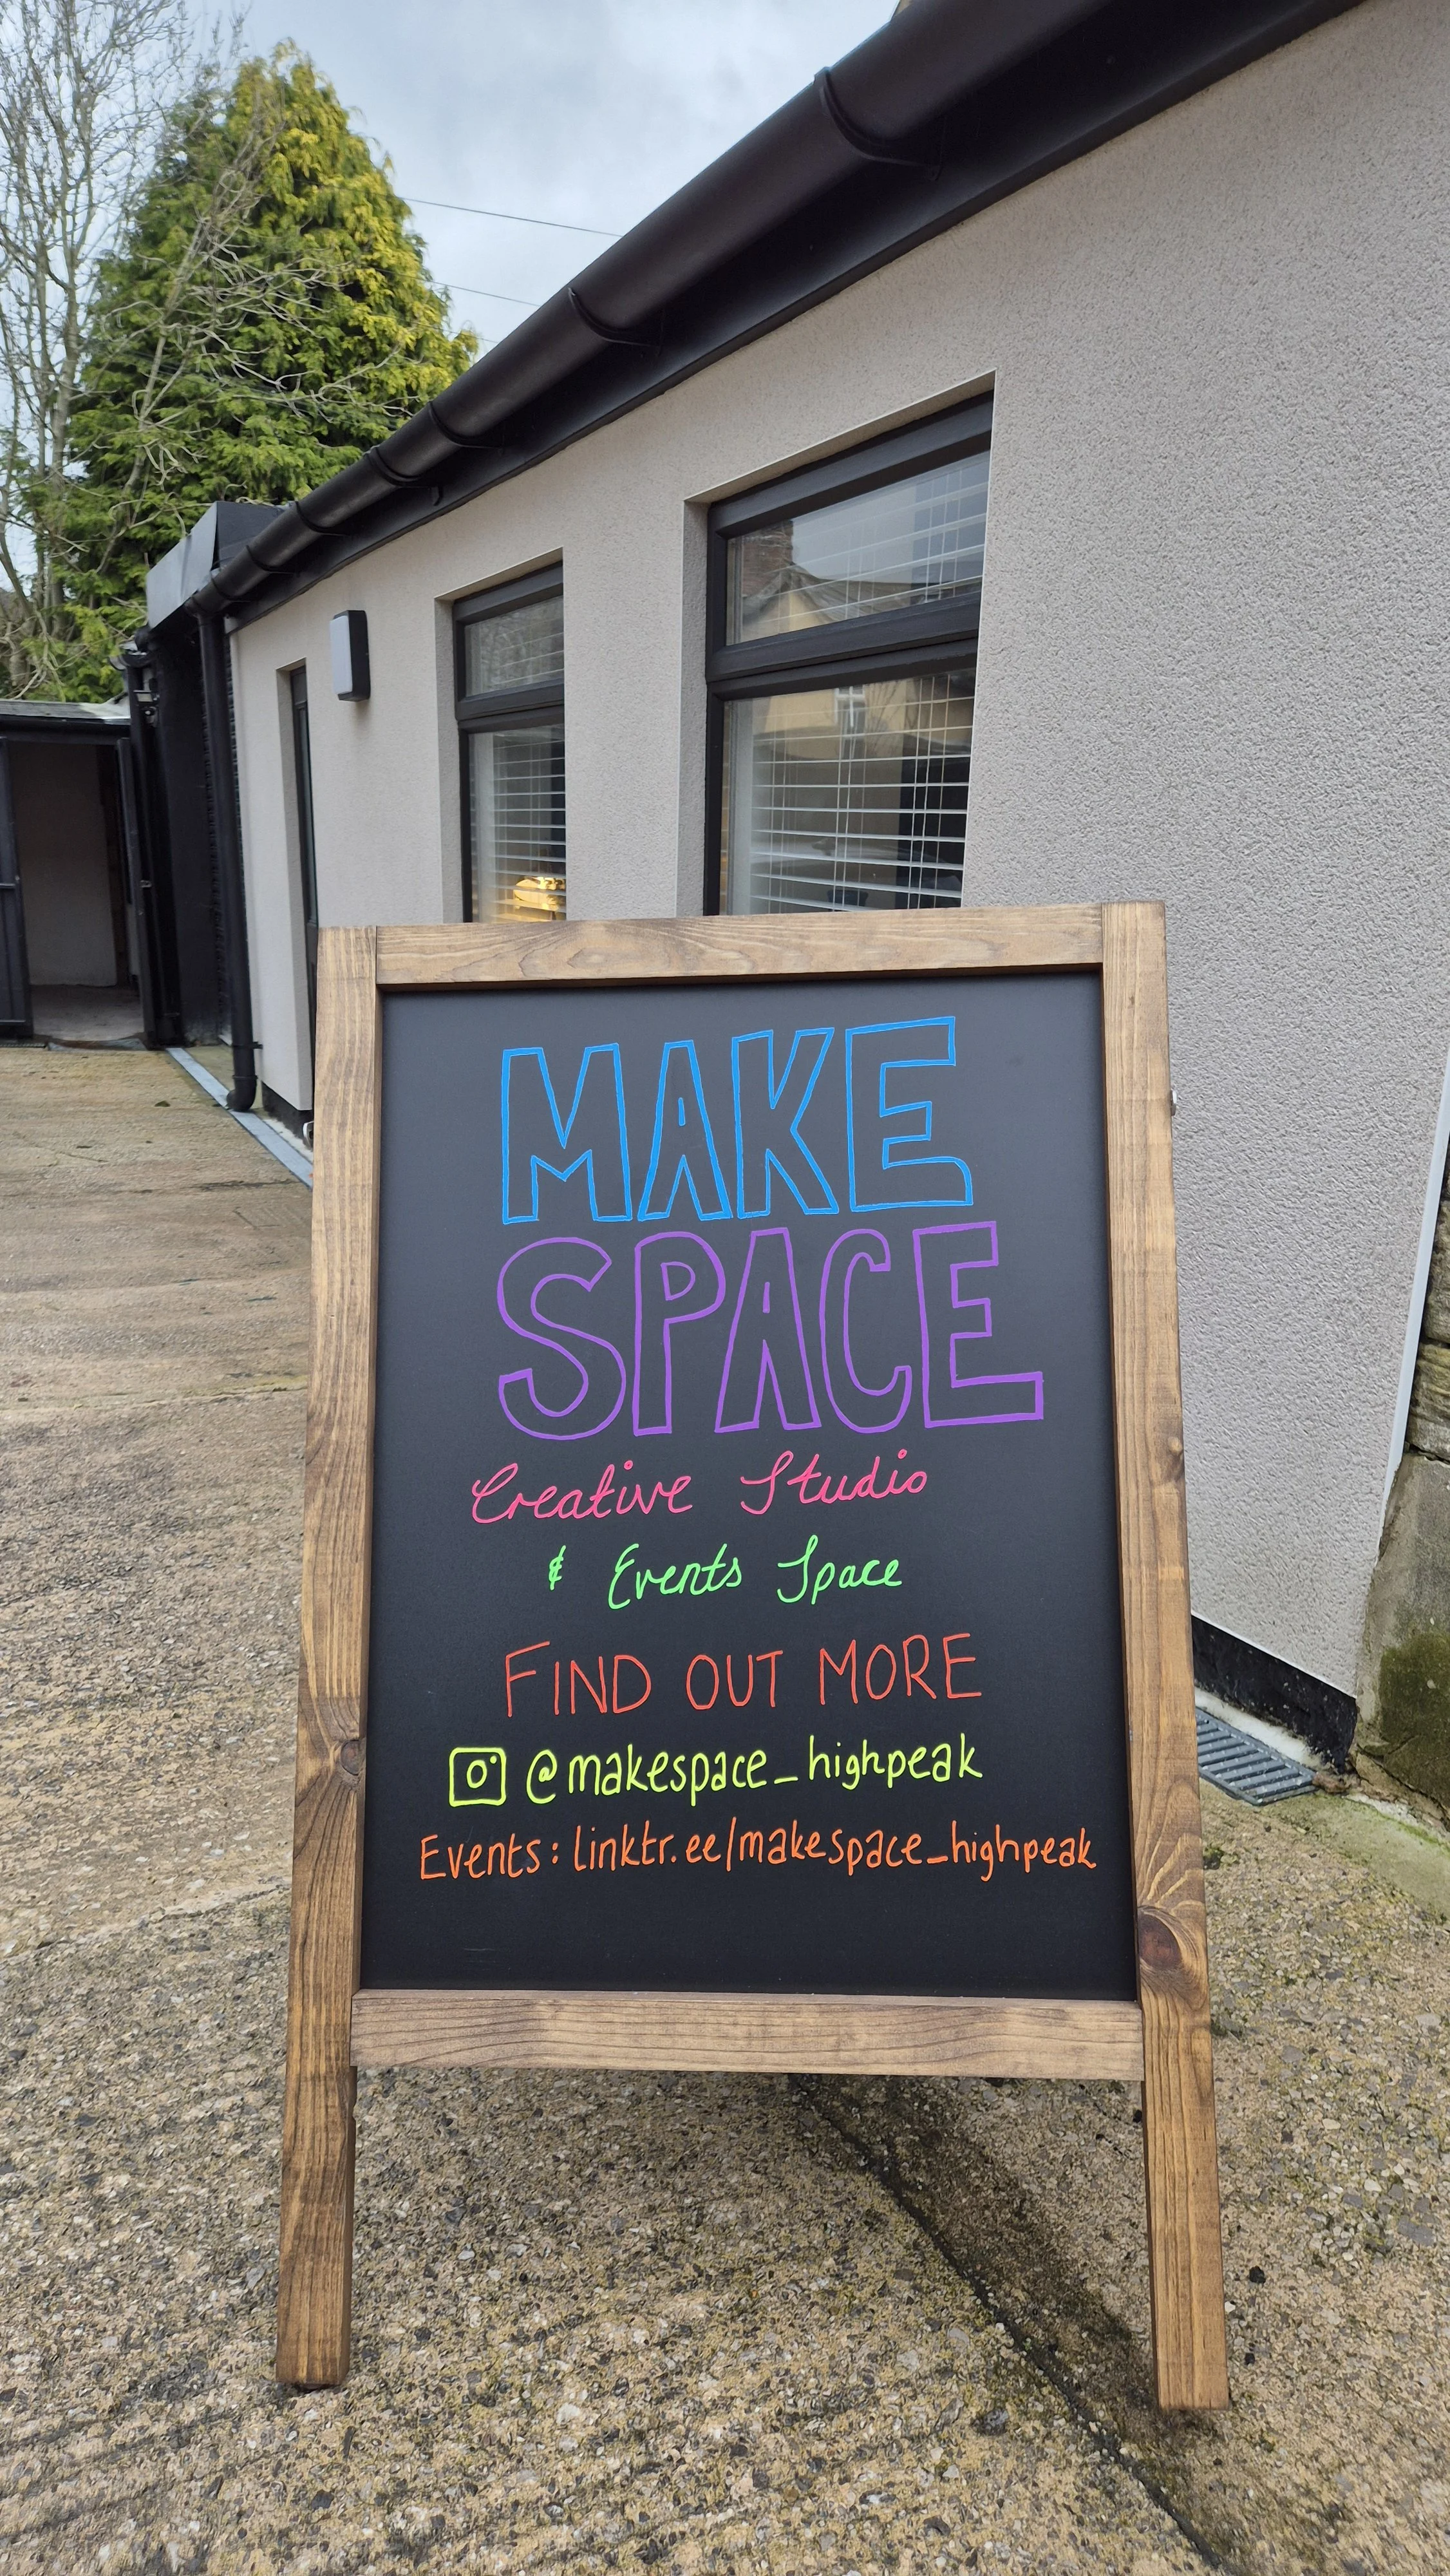 MAKE
SPACE
Creative Studio
& Events Space
FIND OUT MORE
@makespace_highpeak
Events: linktr.ee/makespace_highpeak